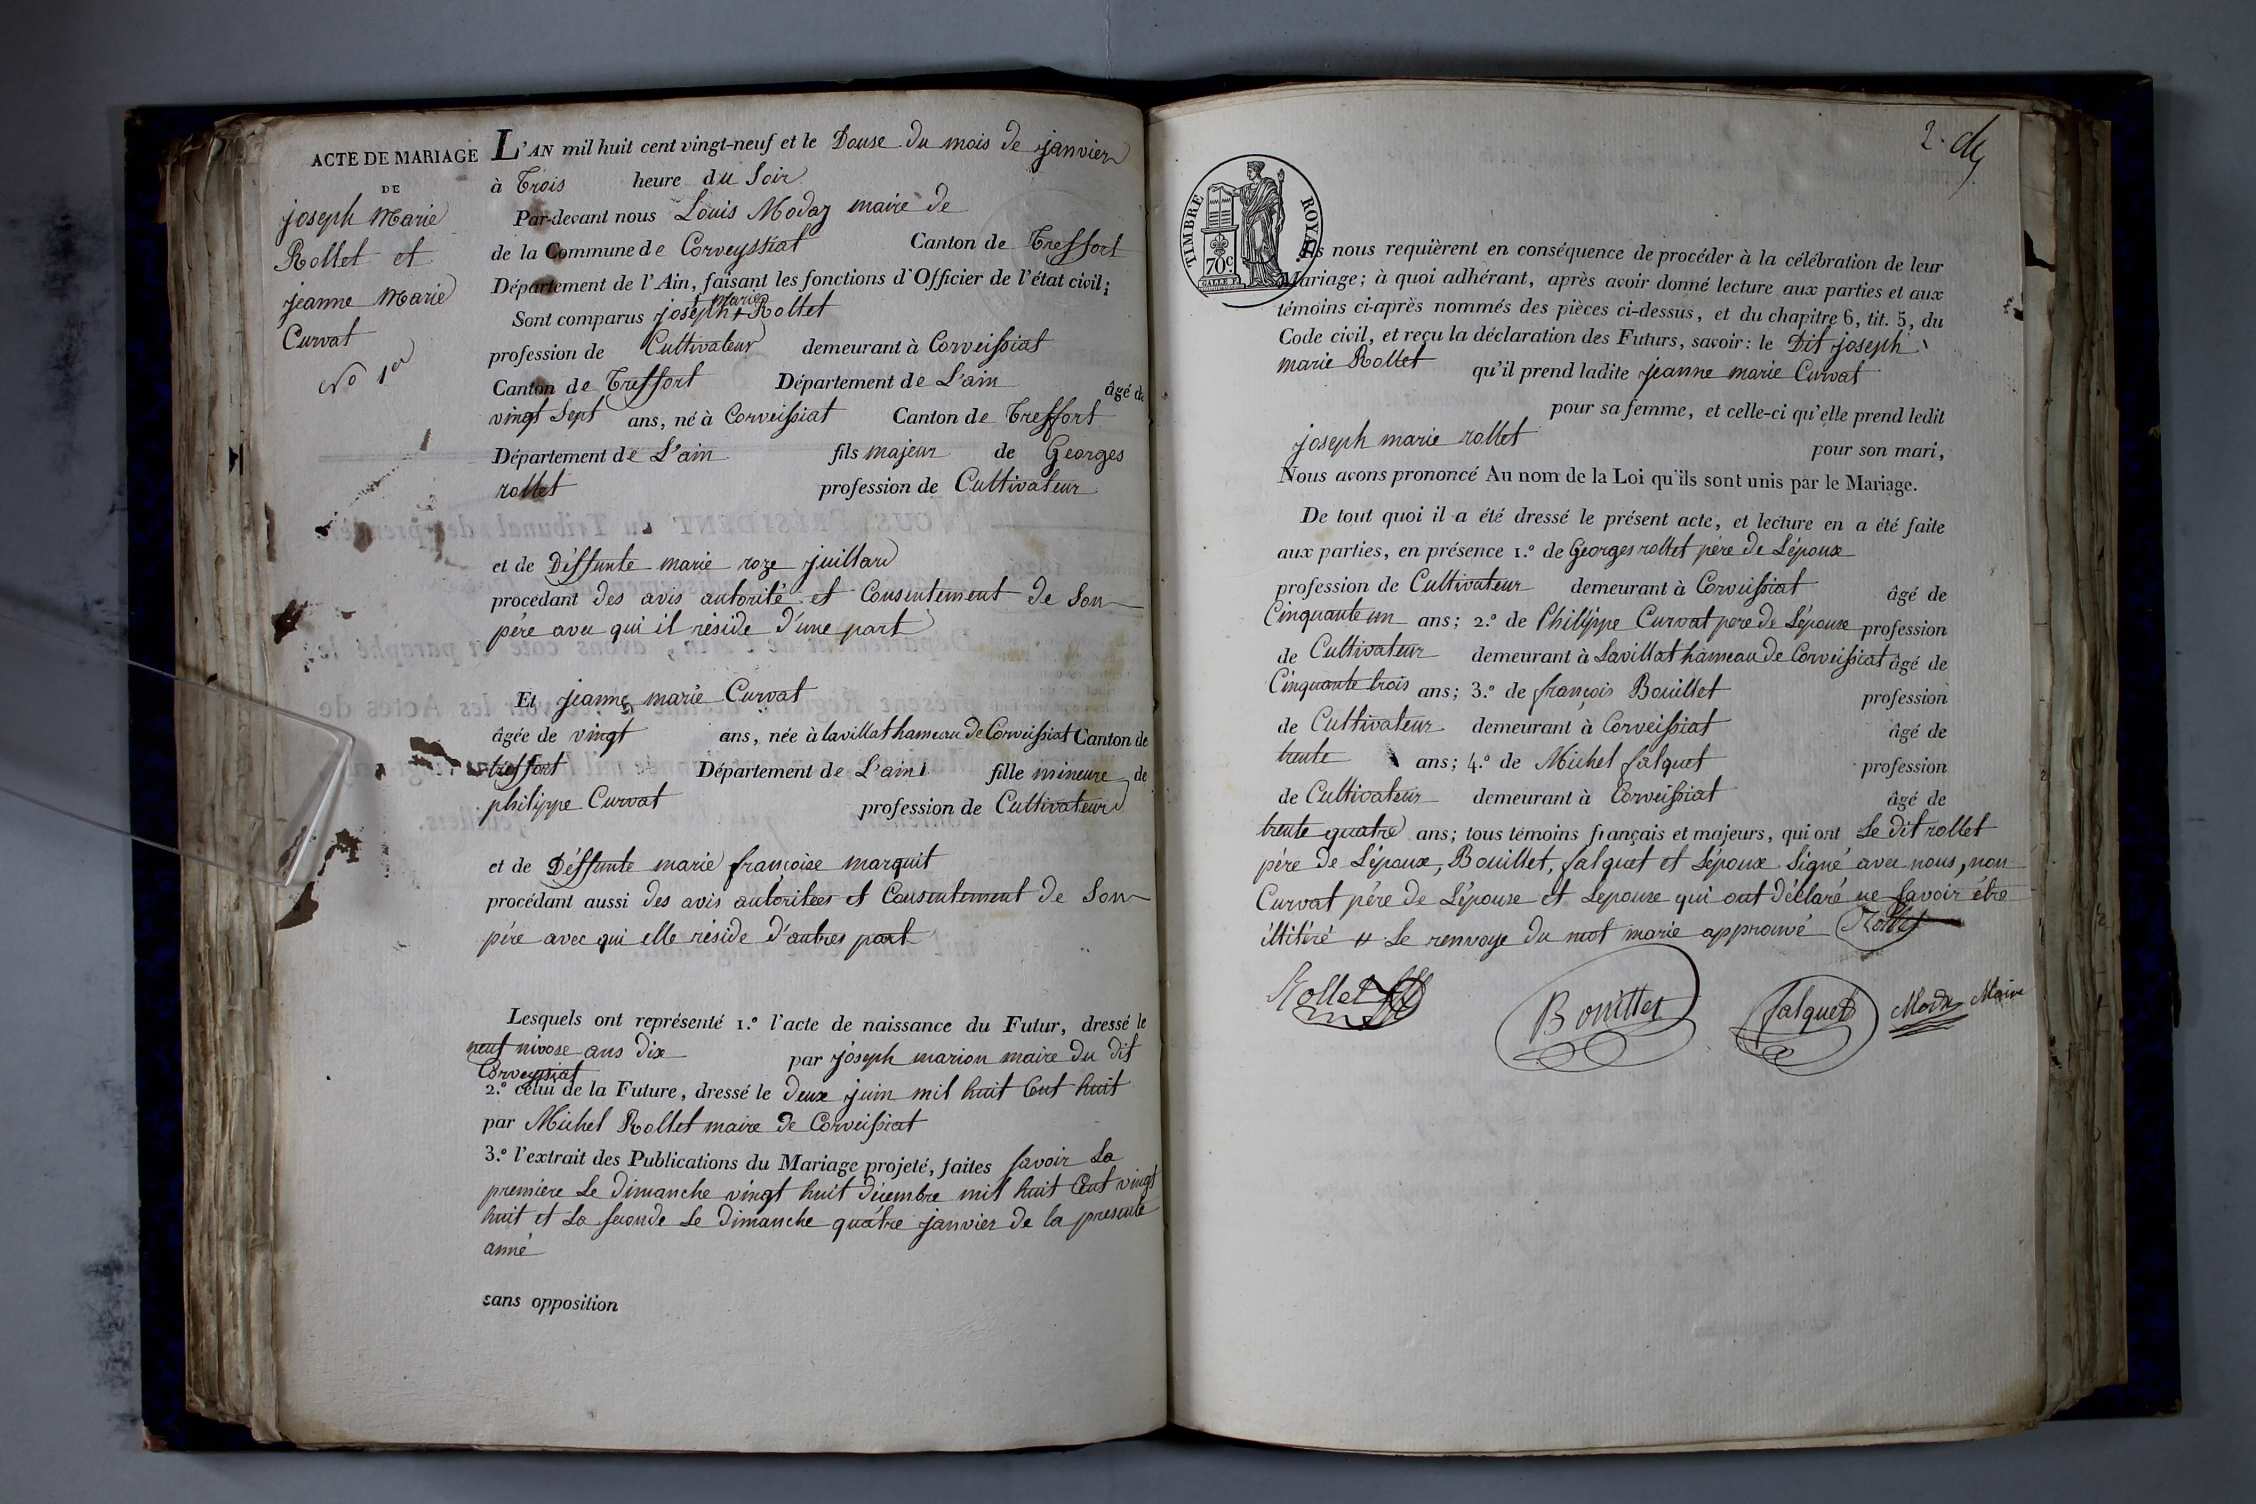 ACTE DE MARIAGE
DE
joseph Marie
Rollet et
jeanne Marie
Curvat
No 1er
L'AN mil huit cent vingt-neuf et le Douse du mois de janvier
à Trois heure du Soir
Par-devant nous Louis Moday maire de
de la Commune de Corveyssiat Canton de Treffort
Département de l'Ain, faisant les fonctions d'Officier de l'état civil;
marie
Sont comparus joseph + Rollet
profession de Cultivateur demeurant à Corveissiat
Canton de Treffort Département de L'ain âgé de
vingt Sept ans, né à Corveissiat Canton de Treffort
Département de L'ain fils majeur de Georges
rollet profession de Cultivateur
et de Déffunte marie roze juillard
procedant des avis autorité et Consentement de Son
pére avec qui il réside d'une part
Et jeanne marie Curvat
âgée de vingt ans, née à lavillat hameau de Corveissiat Canton de
treffort Département de L'ain fille mineure de
philippe Curvat profession de Cultivateur
et de Déffunte marie françoise marquit
procédant aussi des avis autoritées et Consentement de Son
pére avec qui elle réside d'autres part
Lesquels ont représenté 1.º l'acte de naissance du Futur, dressé le
neuf nivose ans dix par joseph marion maire du dit
Corveyssiat
2.º celui de la Future, dressé le deux juin mil huit Cent huit
par Michel Rollet maire de Corveissiat
3.º l'extrait des Publications du Mariage projeté, faites savoir La
premiere Le dimanche vingt huit décembre mil huit Cent vingt
huit et La seconde Le dimanche quatre janvier de la presente
anné
sans opposition
2.
TIMBRE ROYAL
70c
Ils nous requièrent en conséquence de procéder à la célébration de leur
Mariage; à quoi adhérant, après avoir donné lecture aux parties et aux
témoins ci-après nommés des pièces ci-dessus, et du chapitre 6, tit. 5, du
Code civil, et reçu la déclaration des Futurs, savoir: le Dit joseph
marie Rollet qu'il prend ladite jeanne marie Curvat
pour sa femme, et celle-ci qu'elle prend ledit
joseph marie rollet pour son mari,
Nous avons prononcé Au nom de la Loi qu'ils sont unis par le Mariage.
De tout quoi il a été dressé le présent acte, et lecture en a été faite
aux parties, en présence 1.º de Georges rollet pére de L'époux
profession de Cultivateur demeurant à Corveissiat âgé de
Cinquante un ans; 2.º de Philippe Curvat pere de L'épouse profession
de Cultivateur demeurant à Lavillat hameau de Corveissiat âgé de
Cinquante trois ans; 3.º de françois Bouillet profession
de Cultivateur demeurant à Corveissiat âgé de
trente ans; 4.º de Michel falquet profession
de Cultivateur demeurant à Corveissiat âgé de
trente quatre ans; tous témoins français et majeurs, qui ont Le dit rollet
pére de L'époux, Bouillet, falquet et L'époux Signé avec nous, non
Curvat pére de L'épouse et Lepouse qui ont déclaré ne savoir étre
illitéré # Le renvoye du mot marie approuvé Rollet
Rollet
Bouillet
falquet
Moday Maire